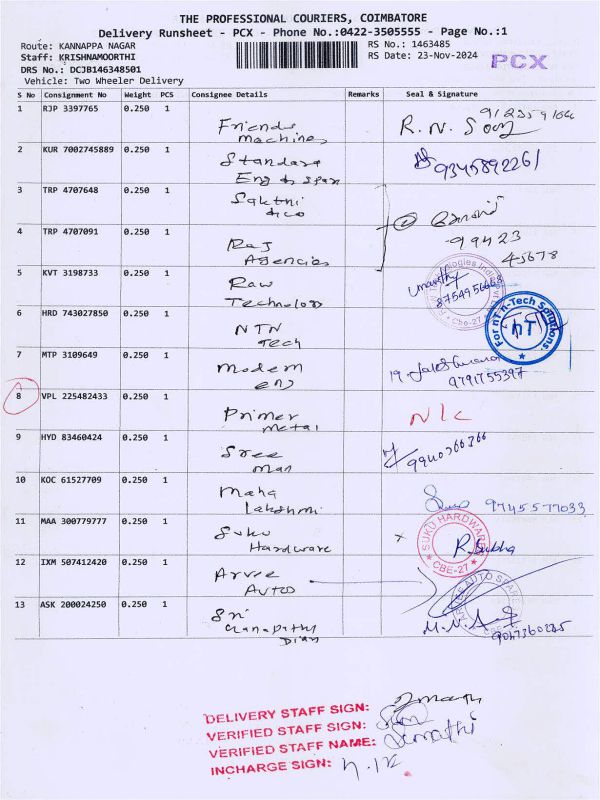 THE PROFESSIONAL COURIERS, COIMBATORE
Delivery Runsheet - PCX - Phone No.:0422-3505555 - Page No.:1
Route: KANNAPPA NAGAR
Staff: KRISHNAMOORTHI
DRS No.: DCJB146348501
Vehicle: Two Wheeler Delivery
RS No.: 1463485
RS Date: 23-Nov-2024
PCX
S No Consignment No Weight PCS Consignee Details Remarks Seal & Signature
1 RJP 3397765 0.250 1 Friends Machines R.N.
2 KUR 7002745889 0.250 1 Standard 9345892261
3 TRP 4707648 0.250 1 Sakthi
4 TRP 4707091 0.250 1 Raj Agencies 99423 45678
5 KVT 3198733 0.250 1 Raw Technology 8754956668
6 HRD 743027850 0.250 1 NTN Tech
For nT n-Tech Solutions
nT
7 MTP 3109649 0.250 1 Modern eng 9791755397
8 VPL 225482433 0.250 1 Primer metal N/C
9 HYD 83460424 0.250 1 Sree man 9940366366
10 KOC 61527709 0.250 1 Maha Lakshmi 9745577033
11 MAA 300779777 0.250 1 Suku Hardware R. Subha
SUKU HARDWARE
CBE-27
12 IXM 507412420 0.250 1 Arvee Auto
AUTO SPARES
13 ASK 200024250 0.250 1 Sri Ganapathy
DELIVERY STAFF SIGN:
VERIFIED STAFF SIGN:
VERIFIED STAFF NAME: Sumathi
INCHARGE SIGN: